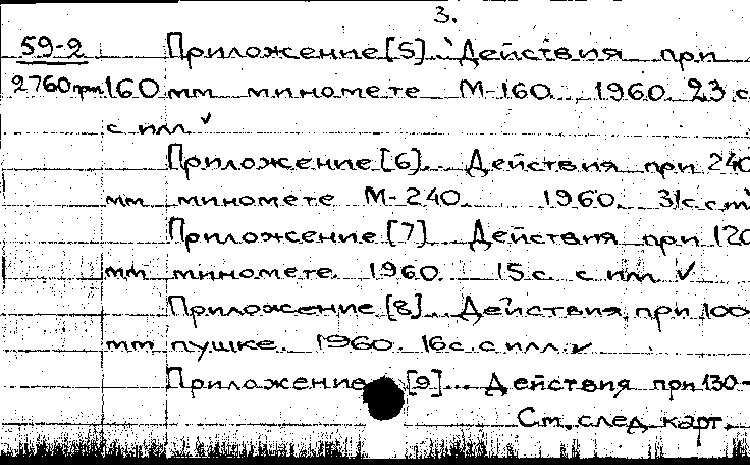 3.
59-2 Приложение [5]. Действия при
2760 при 160 мм миномете М-160. 1960. 23 с
с илл. ✓
Приложение [6]... Действия при 240
мм миномете М-240. 1960. 31 с.
Приложение [7]... Действия при 120
мм миномете. 1960. 15 с. с илл. ✓
Приложение [8]... Действия при 100
мм пушке. 1960. 16 с. с илл. ✓
Приложение [9]... Действия при 130-
См. след. карт.